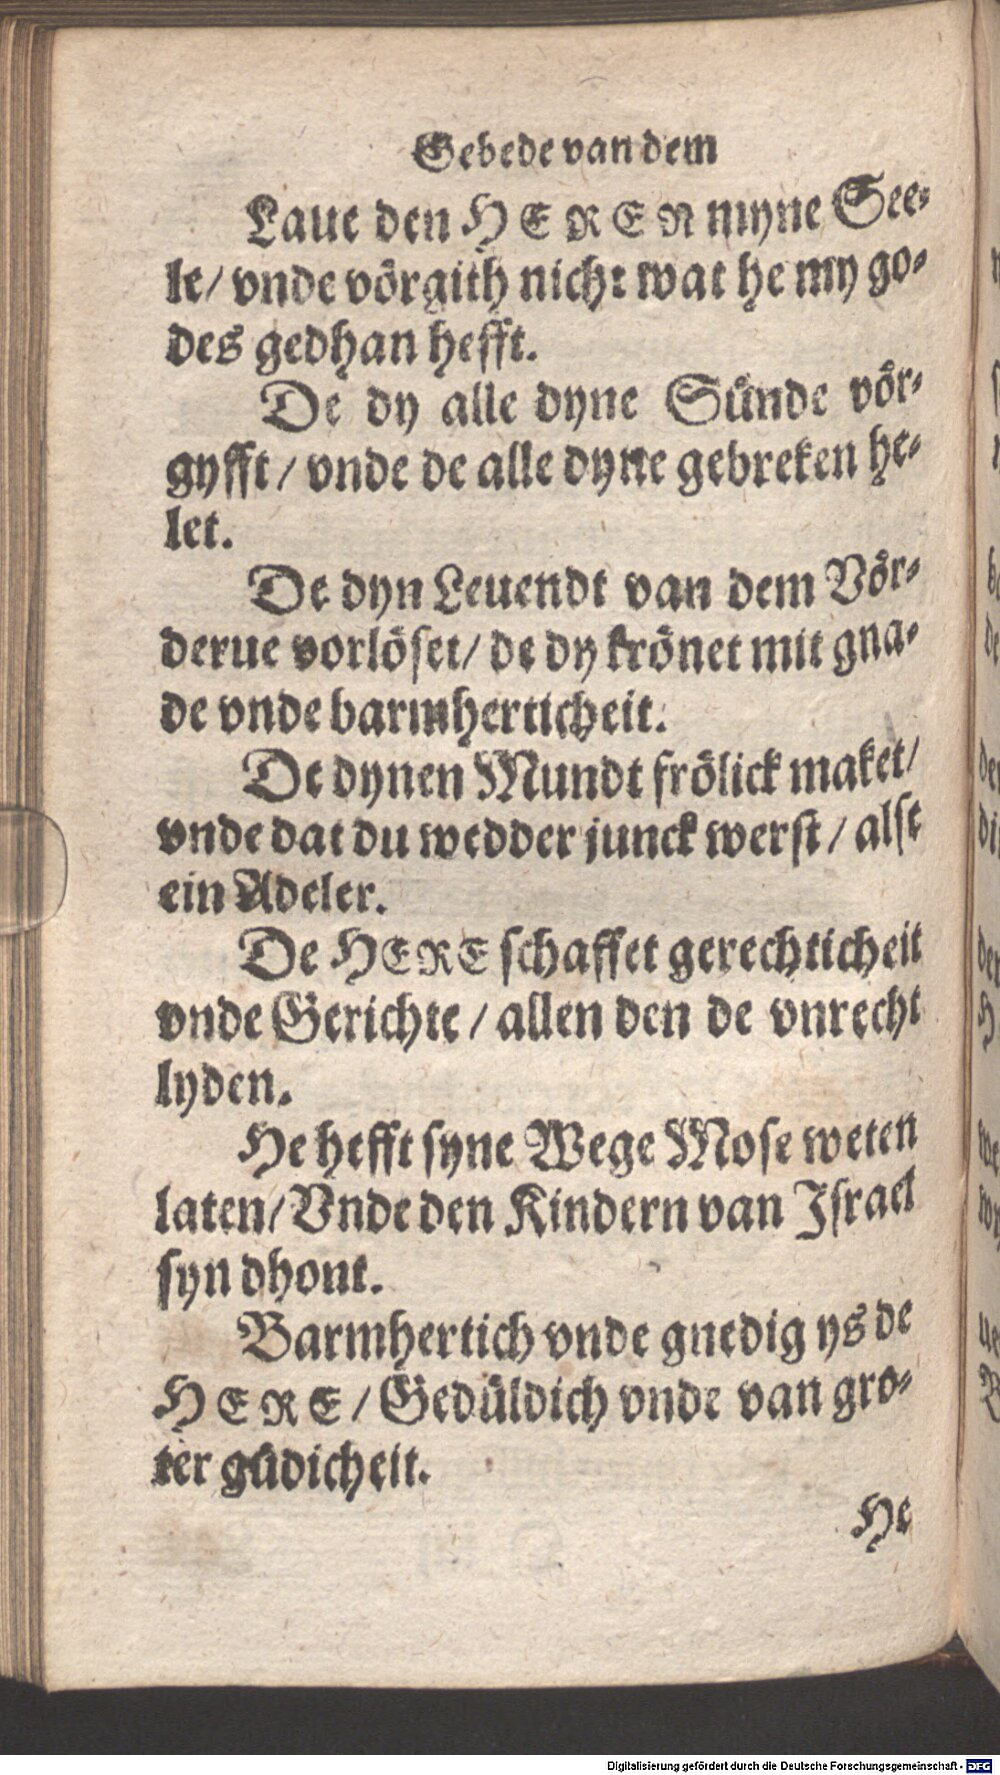 Gebede van dem
Laue den HEREN myne See-
le/ vnde vörgith nicht wat he my go-
des gedhan hefft.
De dy alle dyne Sünde vör-
gyfft/ vnde de alle dyne gebreken he-
let.
De dyn Leuendt van dem Vör-
derue vorlöset/ de dy krönet mit gna-
de vnde barmherticheit.
De dynen Mundt frölick maket/
vnde dat du wedder junck werst/ alse
ein Adeler.
De HERE schaffet gerechticheit
vnde Gerichte/ allen den de vnrecht
lyden.
He hefft syne Wege Mose weten
laten/ Vnde den Kindern van Israel
syn dhont.
Barmhertich vnde gnedig ys de
HERE/ Gedüldich vnde van gro-
ter güdicheit.
He
Digitalisierung gefördert durch die Deutsche Forschungsgemeinschaft - DFG